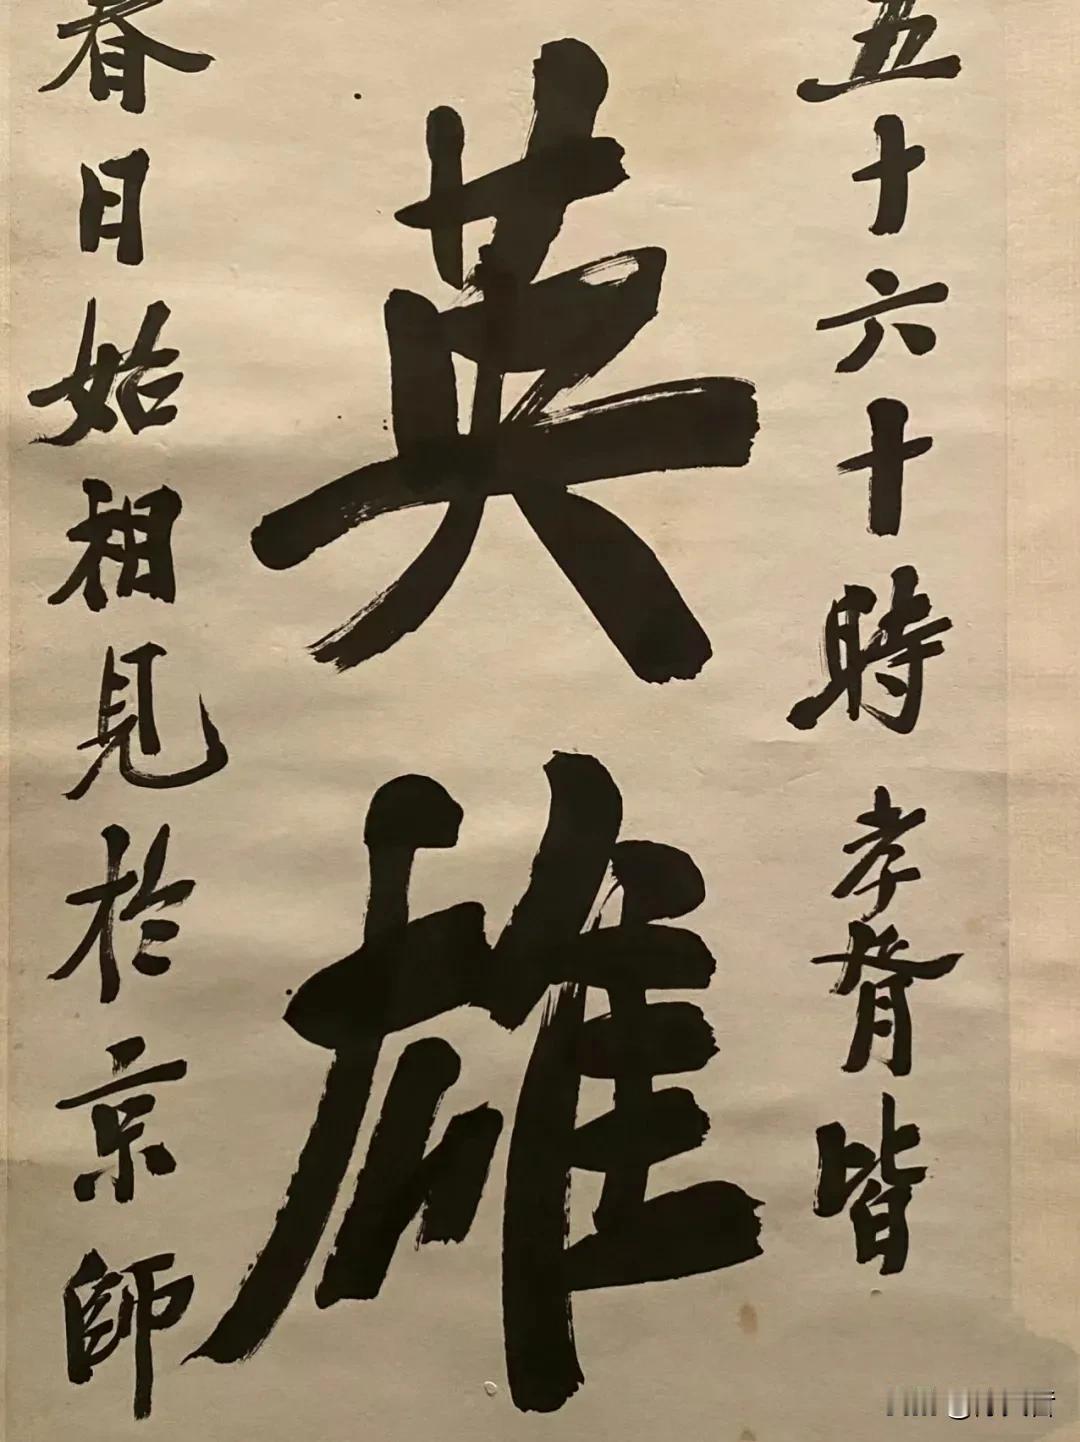 五十六十時孝胥皆
英雄
春日始相見於京師